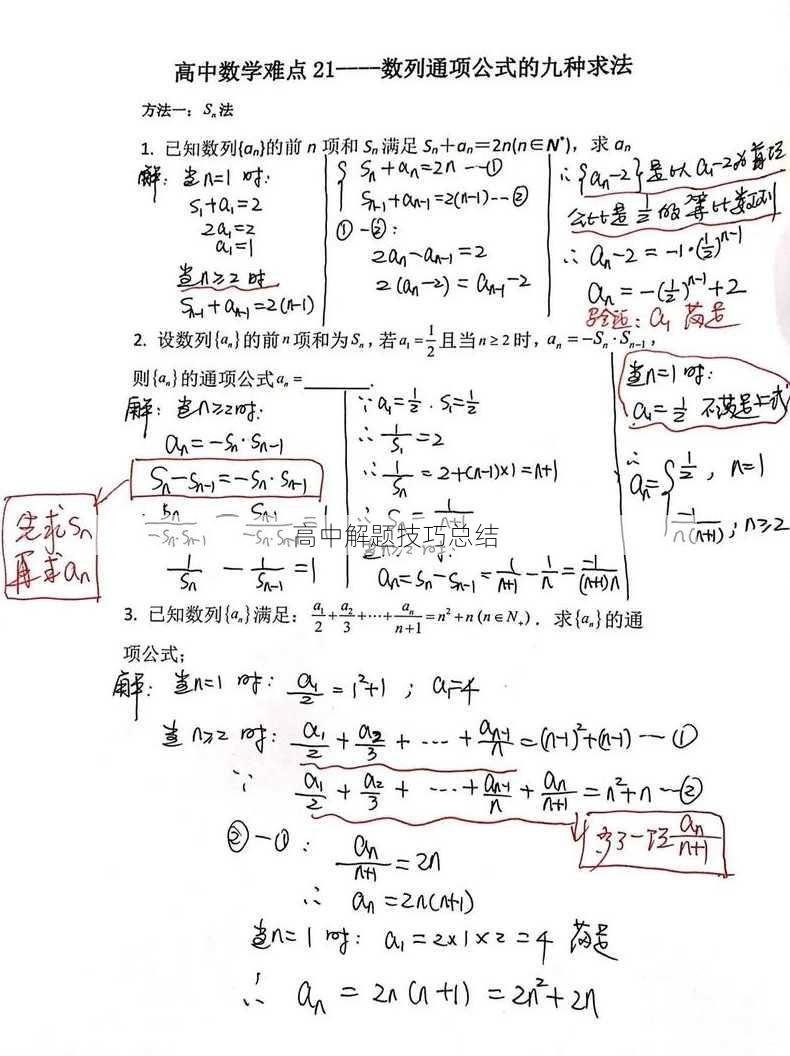 高中数学难点 21----数列通项公式的九种求法
方法一：Sₙ法
1. 已知数列{aₙ}的前 n 项和 Sₙ 满足 Sₙ＋aₙ＝2n(n∈N*)，求 aₙ
解：当n=1 时：
S₁+a₁=2
2a₁=2
a₁=1
当n≥2 时
Sₙ₋₁+aₙ₋₁=2(n-1)
{ Sₙ+aₙ=2n --①
Sₙ₋₁+aₙ₋₁=2(n-1)--②
①-②：
2aₙ-aₙ₋₁=2
2(aₙ-2)=aₙ₋₁-2
∴{aₙ-2}是以a₁-2为首项
公比是1/2的等比数列
∴ aₙ-2=-1·(1/2)ⁿ⁻¹
aₙ=-(1/2)ⁿ⁻¹+2
验证：a₁ 满足
2. 设数列{aₙ}的前n项和为Sₙ，若a₁=1/2且当n≥2时，aₙ=-Sₙ·Sₙ₋₁，
则{aₙ}的通项公式aₙ=________.
解：当n≥2时：
aₙ=-Sₙ·Sₙ₋₁
Sₙ-Sₙ₋₁=-Sₙ·Sₙ₋₁
Sₙ/(-Sₙ·Sₙ₋₁) - Sₙ₋₁/(-Sₙ·Sₙ₋₁)=1
1/Sₙ - 1/Sₙ₋₁=1
先求Sₙ
再求aₙ
∵a₁=1/2 . S₁=1/2
∴ 1/S₁=2
∴ 1/Sₙ=2+(n-1)×1=n+1
∴ Sₙ=1/(n+1)
当n≥2时：
aₙ=Sₙ-Sₙ₋₁=1/(n+1)-1/n=-1/((n+1)n)
当n=1时：
a₁=1/2 不满足上式
∴
aₙ={ 1/2 , n=1
-1/(n(n+1)) ; n≥2
高中解题技巧总结
3. 已知数列{aₙ}满足：a₁/2+a₂/3+⋯+aₙ/(n+1)=n²+n(n∈N₊)．求{aₙ}的通
项公式；
解：当n=1 时：a₁/2=1²+1；a₁=4
当n≥2 时：a₁/2+a₂/3+⋯+aₙ₋₁/n=(n-1)²+(n-1) —①
∵ a₁/2+a₂/3+⋯+aₙ₋₁/n+aₙ/(n+1)=n²+n —②
多了一项 aₙ/(n+1)
②-①：aₙ/(n+1)=2n
∴ aₙ=2n(n+1)
当n=1 时：a₁=2×1×2=4 满足
∴ aₙ=2n(n+1)=2n²+2n